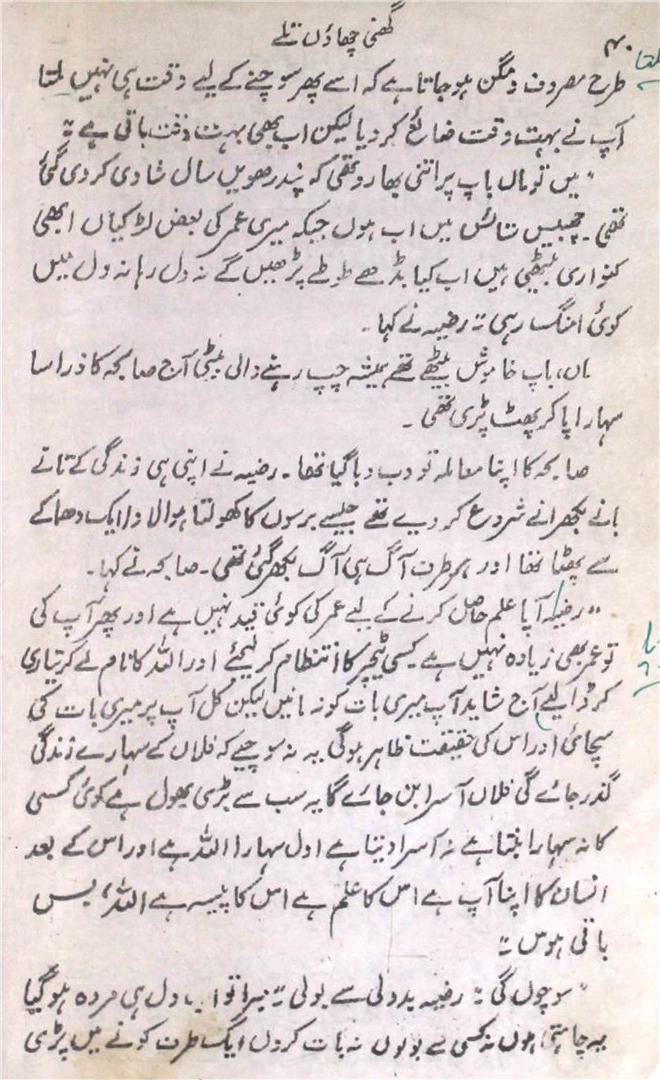 گھنی چھاؤں تلے
۴۰
ملتا
طرح مصروف و مگن ہو جاتا ہے کہ اسے پھر سوچنے کے لیے وقت ہی نہیں ملتا
آپ نے بہت وقت ضائع کر دیا لیکن اب بھی بہت وقت باقی ہے ؛“
”میں تو ماں باپ پر اتنی بھارو تھی کہ پندرھویں سال شادی کر دی گئی
تھی ۔ چھبیس ستائس میں اب ہوں جبکہ میری عمر کی بعض لڑکیاں ابھی
کنواری بیٹھی ہیں اب کیا بڈھے طوطے پڑھیں گے نہ دل رہا نہ دل میں
کوئی امنگ رہی ؛“ رضیہ نے کہا ۔
ماں، باپ خاموش بیٹھے تھے ہمیشہ چپ رہنے والی بیٹی آج صابحہ کا ذرا سا
سہارا پا کر پھٹ پڑی تھی ۔
صابحہ کا اپنا معاملہ تو دب دبا گیا تھا ۔ رضیہ نے اپنی ہی زندگی کے تانے
بانے بکھرانے شروع کر دیے تھے جیسے برسوں کا کھولتا ہوا لاوا ایک دھماکے
سے پھٹا تھا اور ہر طرف آگ ہی آگ بکھر گئی تھی ۔ صابحہ نے کہا ۔
”رضیہ آپا علم حاصل کرنے کے لیے عمر کی کوئی قید نہیں ہے اور پھر آپ کی
تو عمر بھی زیادہ نہیں ہے ۔ کسی ٹیچر کا انتظام کر لیجئے اور اللہ کا نام لے کر تیاری
کر ڈالیے آج شاید آپ میری بات کو نہ مانیں لیکن کل آپ پر میری بات کی
سچائی اور اس کی حقیقت ظاہر ہو گی یہ نہ سوچیے کہ فلاں کے سہارے زندگی
گذر جائے گی فلاں آسرا بن جائے گا یہ سب سے بڑی بھول ہے کوئی کسی
کا نہ سہارا بنتا ہے نہ آسرا دیتا ہے اول سہارا اللہ ہے اور اس کے بعد
انسان کا اپنا آپ ہے اس کا علم ہے اس کا پیسہ ہے اللہ، بس
باقی ہوس ؛“
”سوچوں گی ؛“ رضیہ بددلی سے بولی ؛“ میرا تو اب دل ہی مردہ ہو گیا
یہ چاہتی ہوں نہ کسی سے بولوں نہ بات کروں ایک طرف کونے میں پڑی